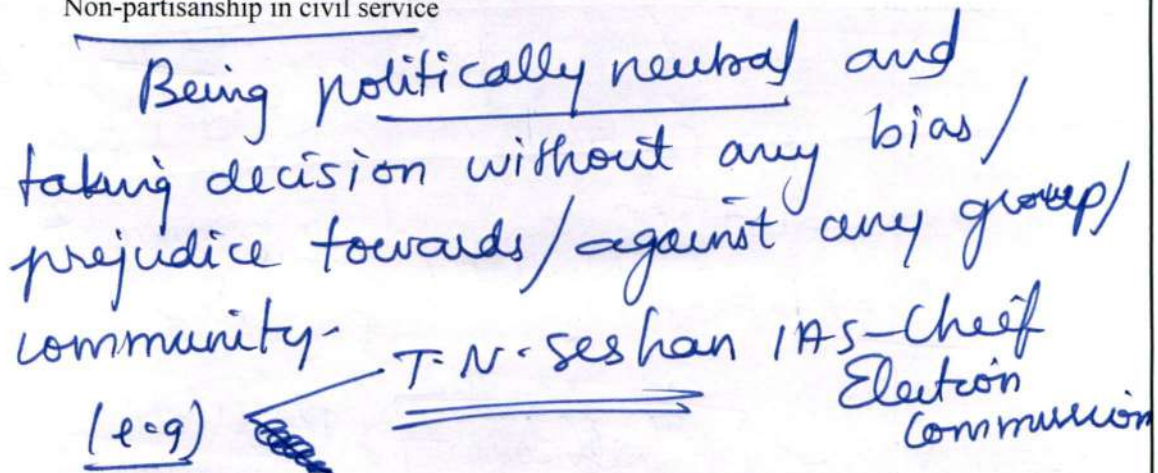 Non-partisanship in civil service
Being politically neutral and
taking decision without any bias/
prejudice towards/against any group/
community-
T.N. Seshan IAS-Cheif
Election
Commission
(e.g)